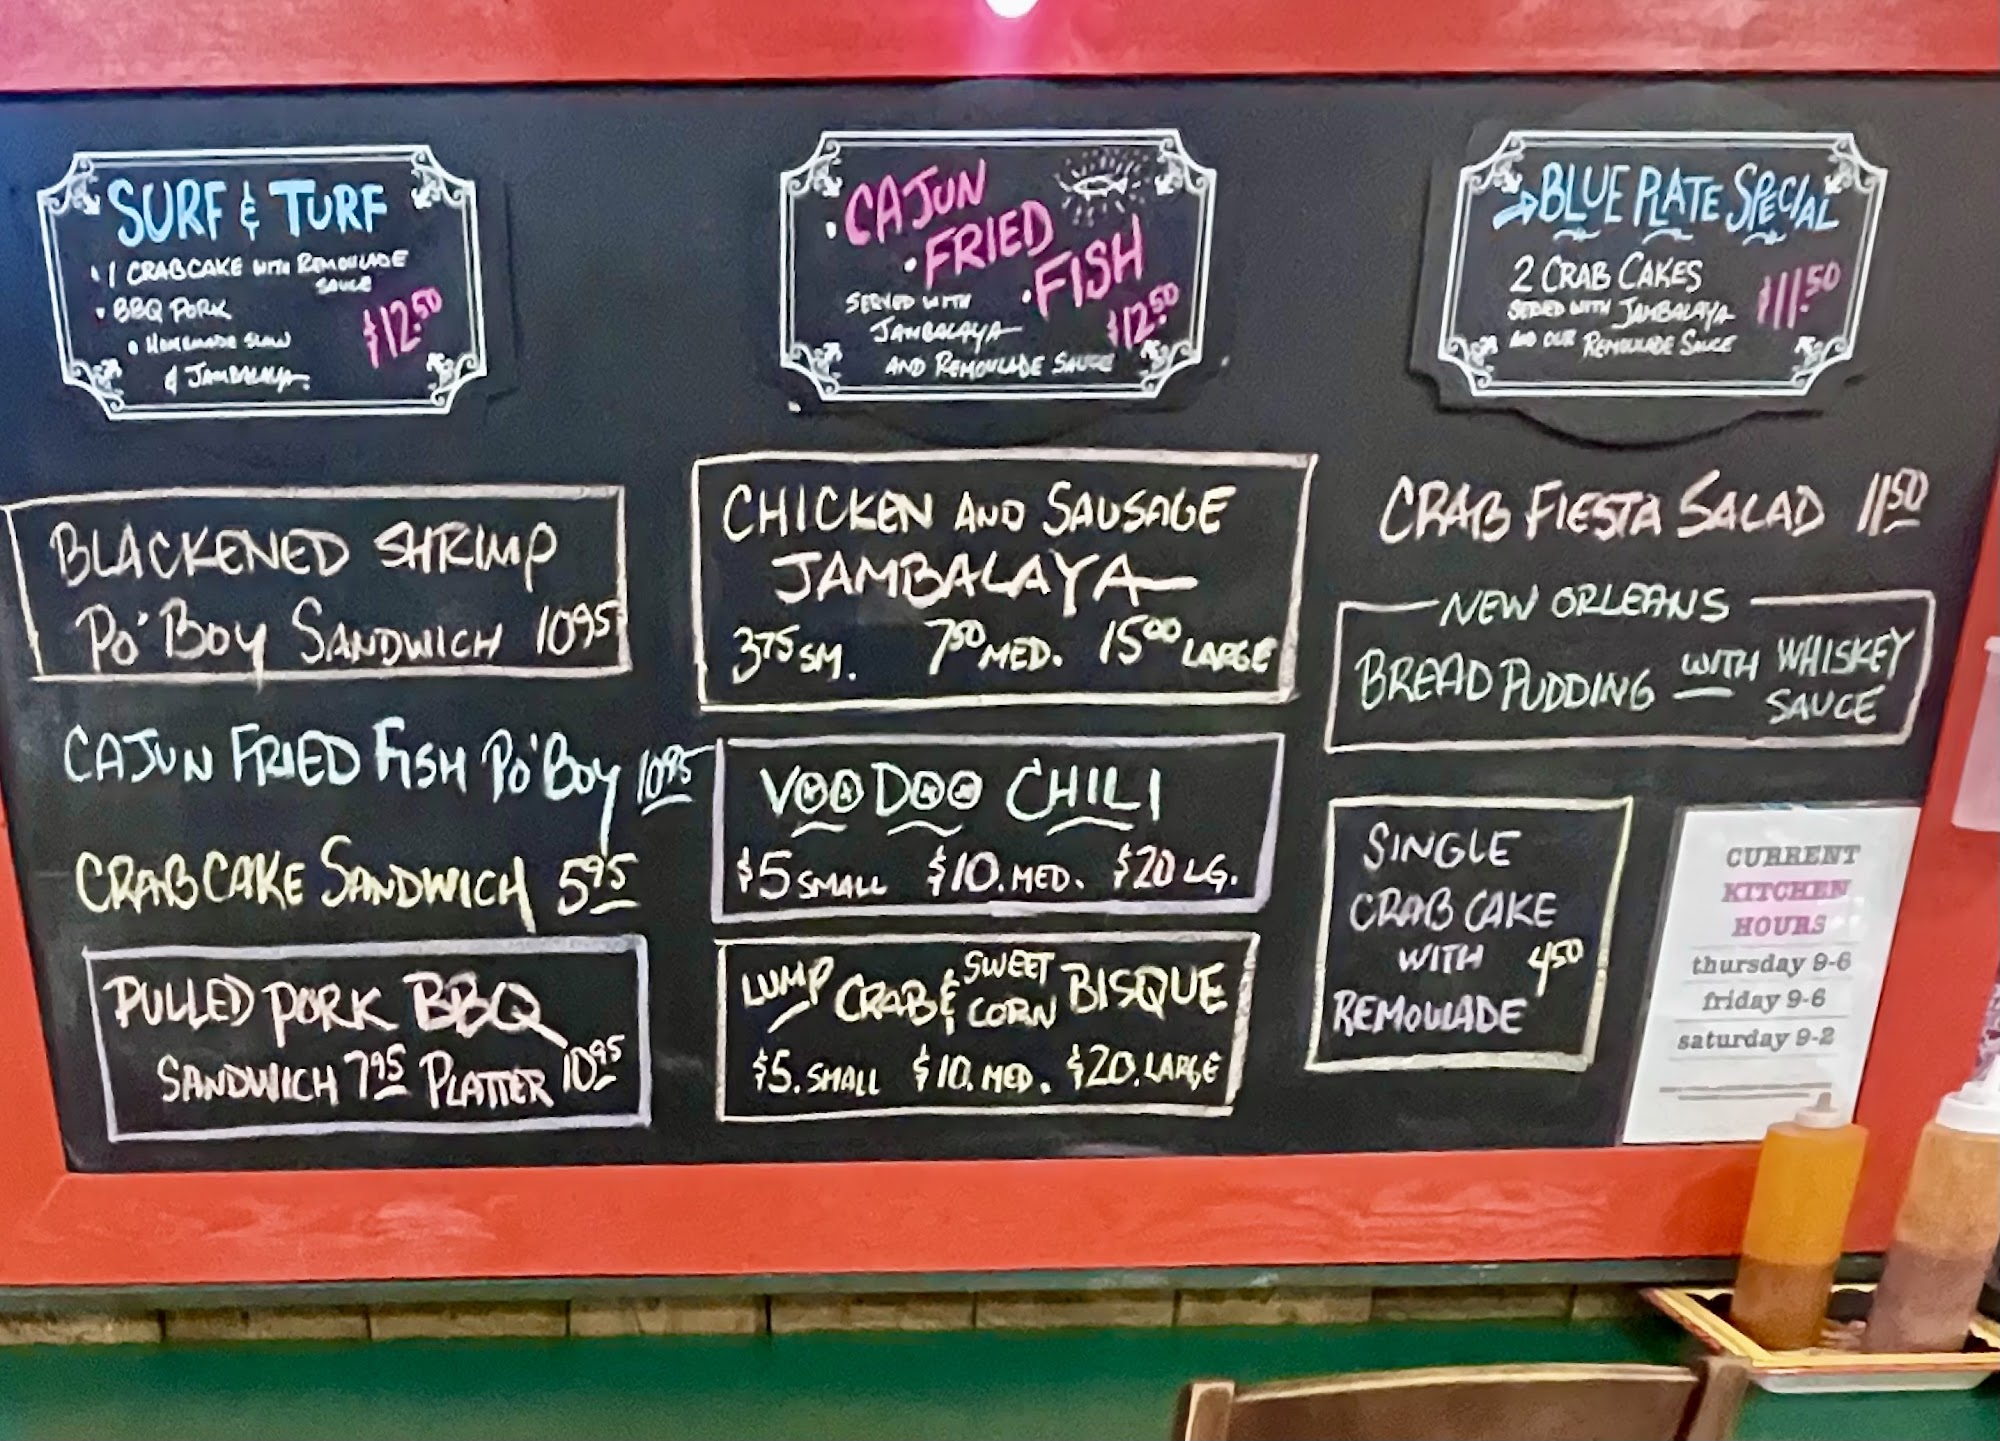 SURF & TURF
• 1 CRABCAKE WITH REMOULADE
SAUCE
• BBQ PORK
• HOMEMADE SLAW
& JAMBALAYA.
$12.50
• CAJUN
• FRIED
• FISH
SERVED WITH
JAMBALAYA
AND REMOULADE SAUCE
$12.50
BLUE PLATE SPECIAL
2 CRAB CAKES
SERVED WITH JAMBALAYA
AND OUR REMOULADE SAUCE
$11.50
BLACKENED SHRIMP
PO' BOY SANDWICH 10 95
CAJUN FRIED FISH PO' BOY 10 95
CRABCAKE SANDWICH 5 95
PULLED PORK BBQ
SANDWICH 7 95 PLATTER 10 95
CHICKEN AND SAUSAGE
JAMBALAYA
3 75 SM. 7 50 MED. 15 00 LARGE
VOODOO CHILI
$5 SMALL $10. MED. $20 LG.
LUMP CRAB & SWEET CORN BISQUE
$5. SMALL $10. MED. $20. LARGE
CRAB FIESTA SALAD 11 50
NEW ORLEANS
BREAD PUDDING WITH WHISKEY
SAUCE
SINGLE
CRAB CAKE
WITH 4 50
REMOULADE
CURRENT
KITCHEN
HOURS
thursday 9-6
friday 9-6
saturday 9-2